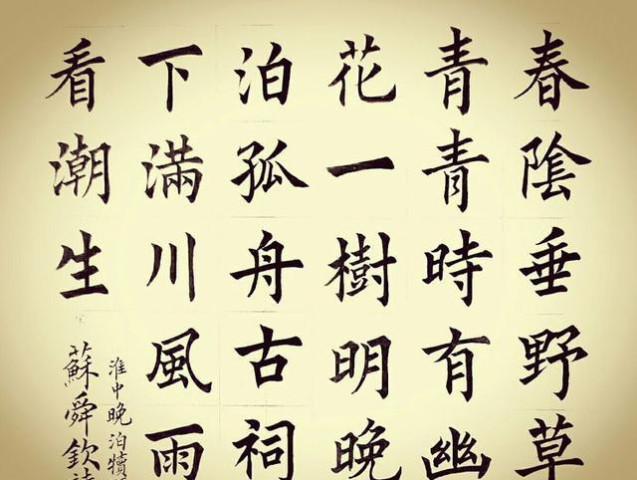 春陰垂野草
青青時有幽
花一樹明晚
泊孤舟古祠
下滿川風雨
看潮生
淮中晚泊犢
蘇舜欽詩